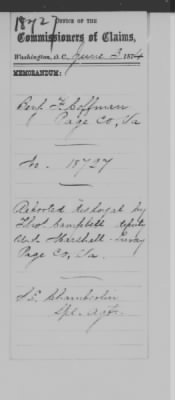 18727
OFFICE OF THE
Commissioners of Claims,
Washington, D.C. June 3, 1874
MEMORANDUM:
Benj. F. Coffman
Page Co, Va
No. 18727
Reported disloyal by
Thos. Campbell deputy
Marshall Luray
Page Co, Va.
S.S. Chamberlin
Spl. Agt.